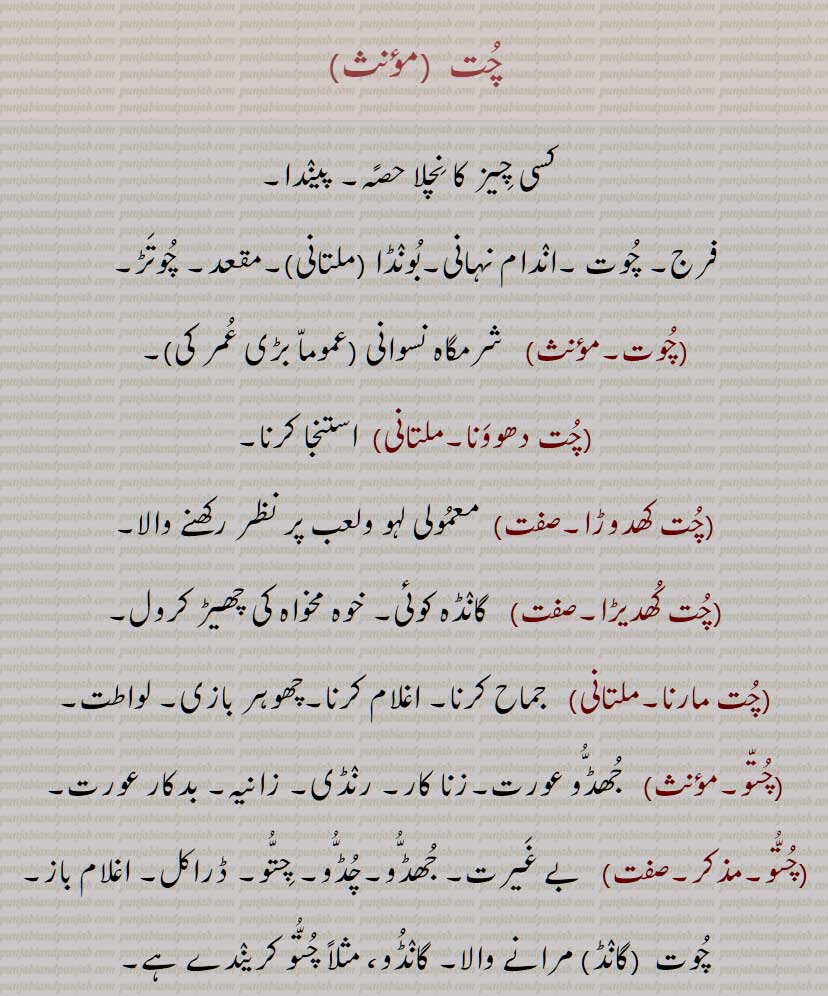 چُت (مؤنث)
کسی چِیز کا نِچلا حصّہ۔ پینْدا۔
فرج۔ چُوت ۔انْدام نہانی۔بُونْڈا (ملتانی)۔مقعد۔ چُوتَڑ۔
(چُوت۔مؤنث) شرمگاہ نسوانی (عموماّ بڑی عُمر کی)۔
(چُت دھووَنا۔ملتانی) استنجا کرنا۔
(چُت کھدوڑا۔صفت) معمُولی لہو ولعب پر نظر رکھنے والا۔
(چُت کُھدیڑا۔صفت) گانْڈہ کوئی۔ خوہ مخواہ کی چھیڑ کرول۔
(چُت مارنا۔ملتانی) جماح کرنا۔ اغلام کرنا۔چھوہر بازی۔ لواطت۔
(چُتّو۔مؤنث) جُھڈُّو عورت۔زنا کار۔ رنْڈی۔ زانیہ۔ بدکار عورت۔
(چُتُّو۔مذکر۔صفت) بے غَیرت۔ جُھڈُّو۔چُڈُّو۔ چِتُّو۔ ڈراکل۔ اغلام باز۔
چُوت (گانْڈ) مرانے والا۔ گانْڈُو، مثلاً چُتُّو کرینْدے ہے۔
punjabiandpunjab.com